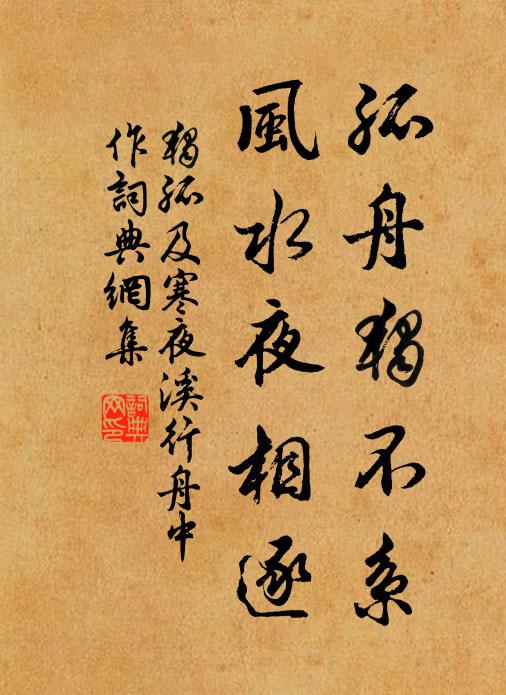 孤舟獨不系
風水夜相逐
獨孤及寒夜溪行舟中
作詞典網集
詞典
网印